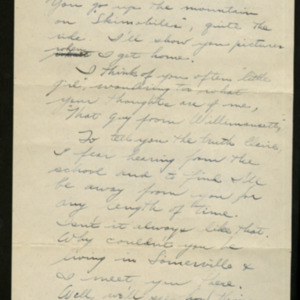 You go up the mountain
on "Skimobiles", quite the
ride I'll show you pictures
when I get home.
I think of you often little
girl, wondering what
your thoughts are of me,
"That guy from Willimansett."
To tell you the truth Claire
I fear hearing from the
school and to find I'll
be away from you for
any length of time.
Isn't it always like that.
Why couldn't you be
living in Somerville &
I meet you there.
Well we'll